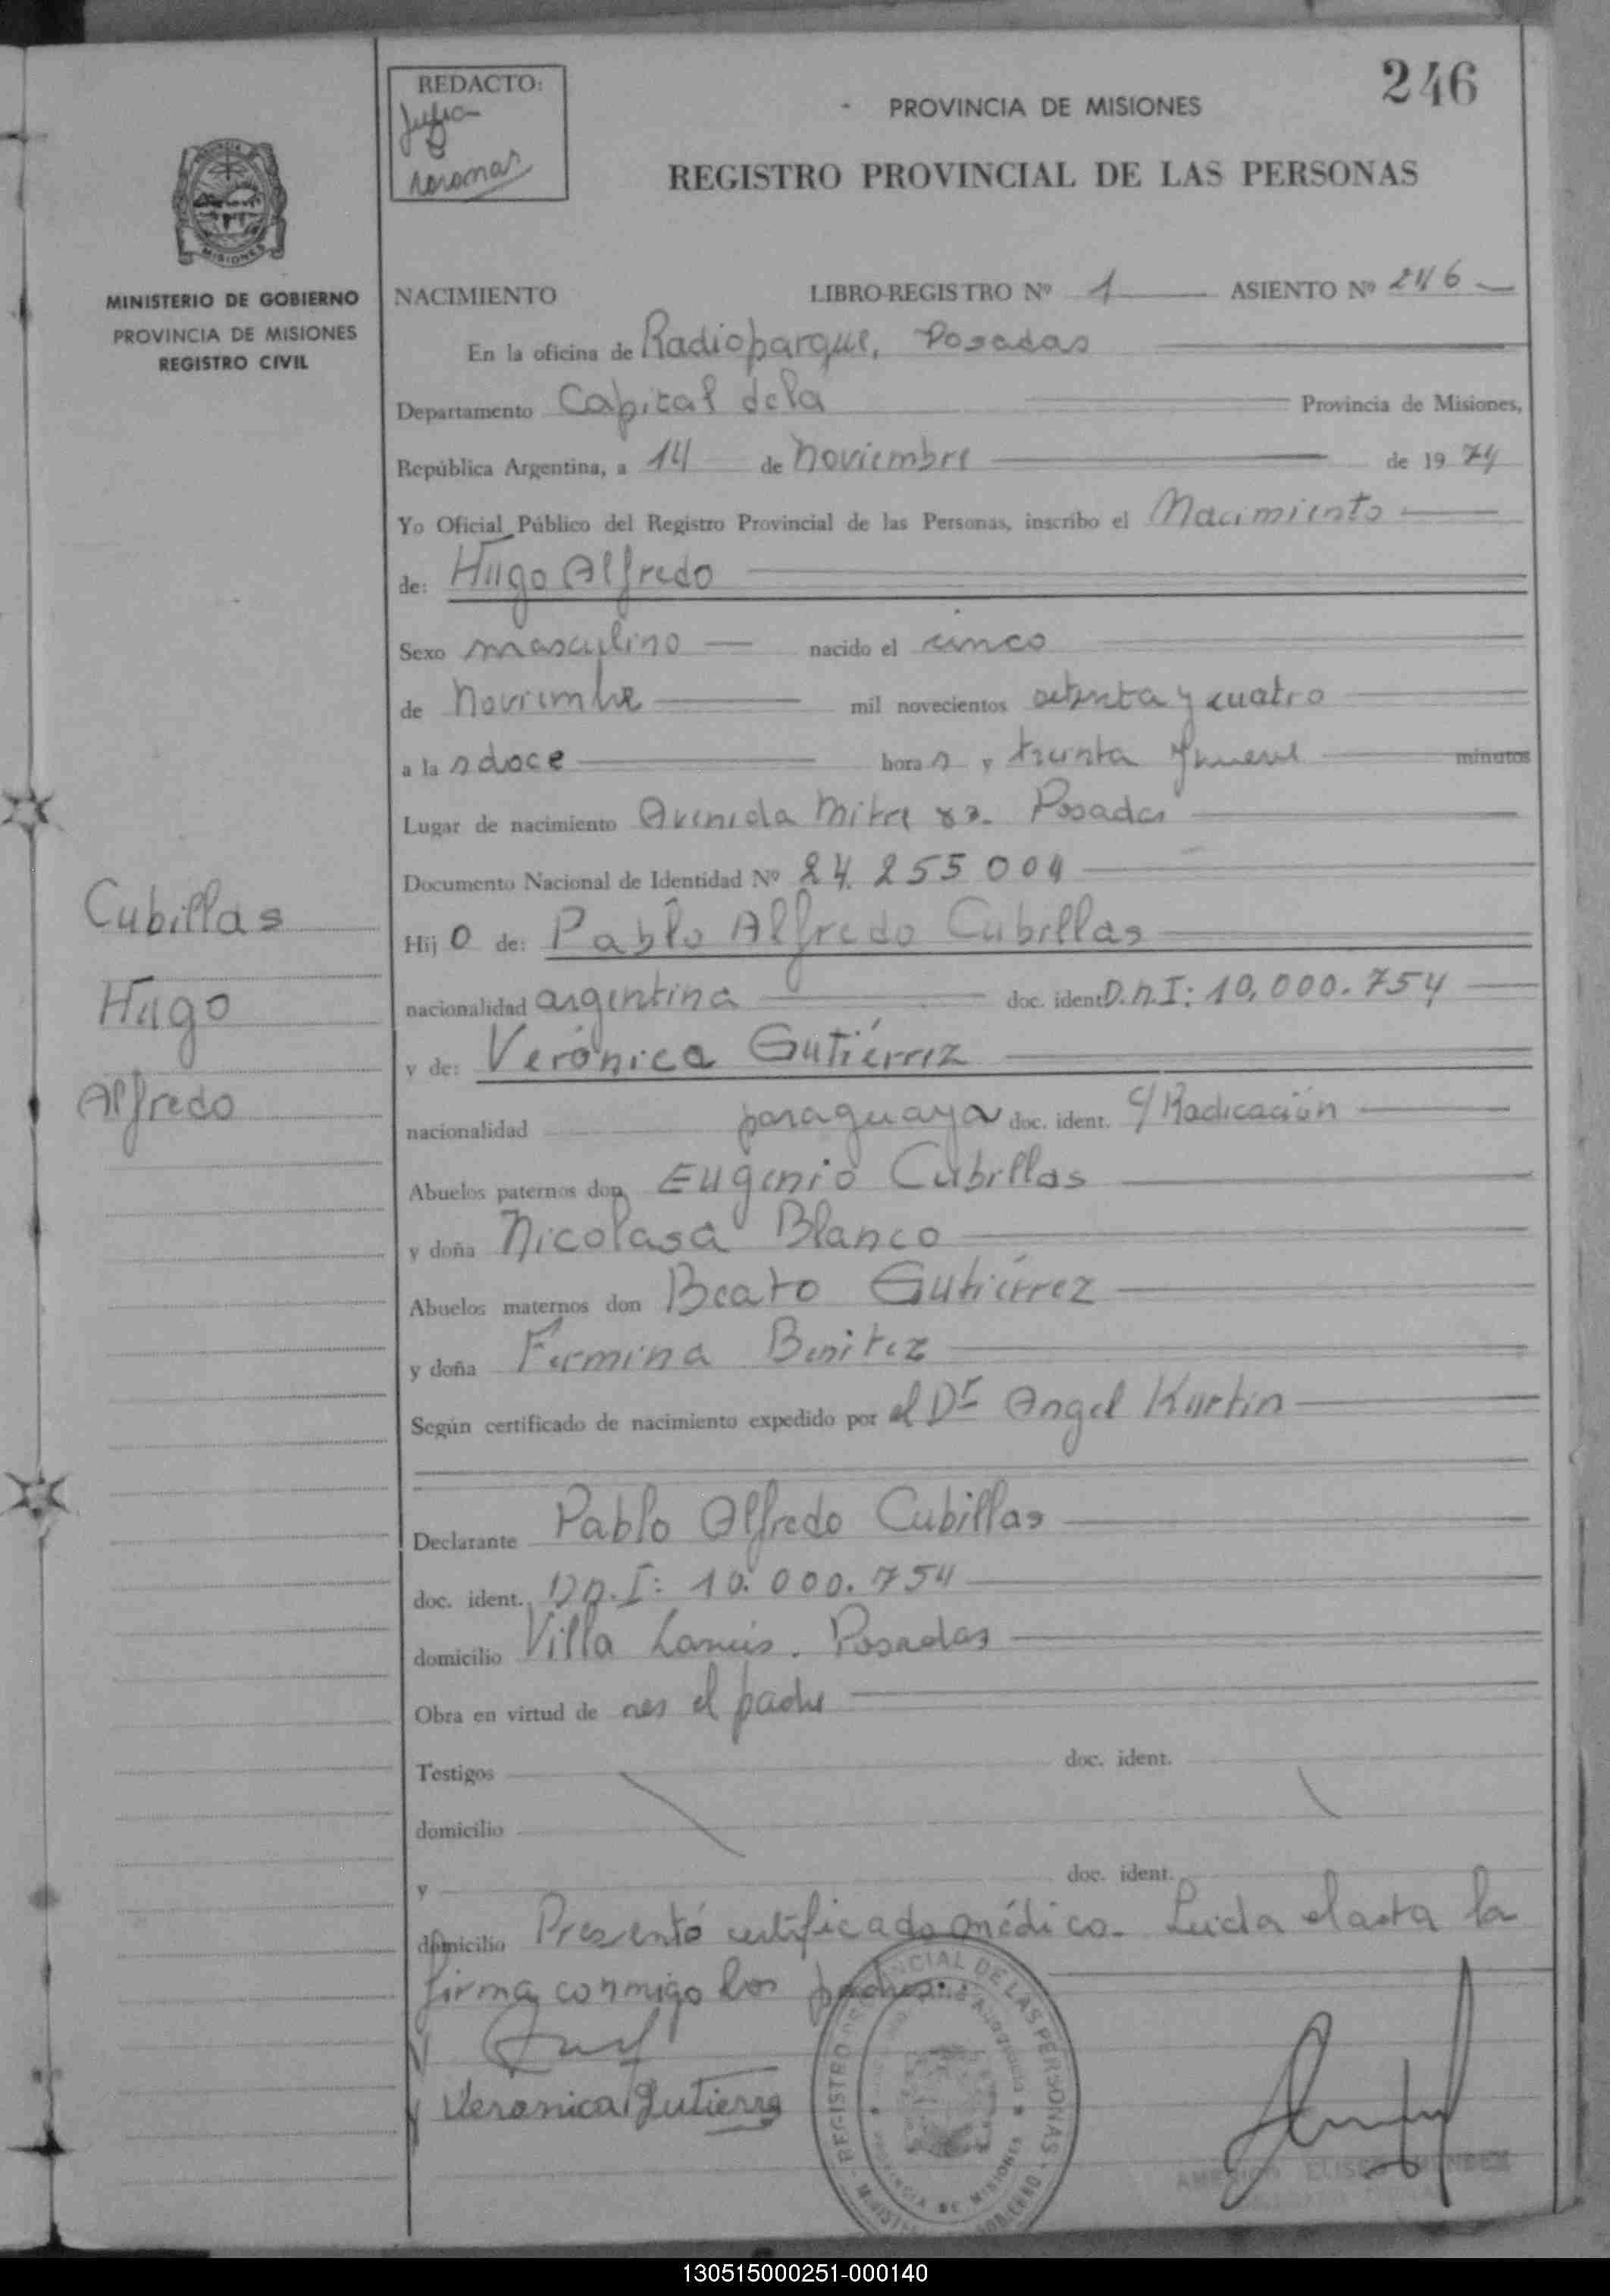 246
REDACTO:
PROVINCIA DE MISIONES
REGISTRO PROVINCIAL DE LAS PERSONAS
MISIONES
MINISTERIO DE GOBIERNO
PROVINCIA DE MISIONES
REGISTRO CIVIL
NACIMIENTO LIBRO-REGISTRO Nº 1 ASIENTO Nº 246
En la oficina de Radioparque, Posadas
Departamento Capital de la Provincia de Misiones,
República Argentina, a 14 de noviembre de 1974
Yo Oficial Público del Registro Provincial de las Personas, inscribo el Nacimiento
de: Hugo Alfredo
Sexo masculino nacido el cinco
de noviembre mil novecientos setenta y cuatro
a la s doce hora s y treinta y nueve minutos
Lugar de nacimiento Avenida Mitre Posadas
Documento Nacional de Identidad Nº 24.255004
Cubillas
Hij o de: Pablo Alfredo Cubillas
Hugo
nacionalidad argentina doc. ident. D.N.I: 10.000.754
y de: Verónica Gutiérrez
Alfredo
nacionalidad paraguaya doc. ident. C/Radicación
Abuelos paternos don Eugenio Cubillas
y doña Nicolasa Blanco
Abuelos maternos don Beato Gutiérrez
y doña Fermina Benitez
Según certificado de nacimiento expedido por el Dr Angel Kurtin
Declarante Pablo Alfredo Cubillas
doc. ident. D.N.I: 10.000.754
domicilio Villa Lanús. Posadas
Obra en virtud de ser el padre
Testigos doc. ident.
domicilio
y doc. ident.
domicilio Presentó certificado médico. Leida el acta la
firma conmigo los padres.
Veronica Gutierre
REGISTRO PROVINCIAL DE LAS PERSONAS
PROVINCIA DE MISIONES
130515000251-000140